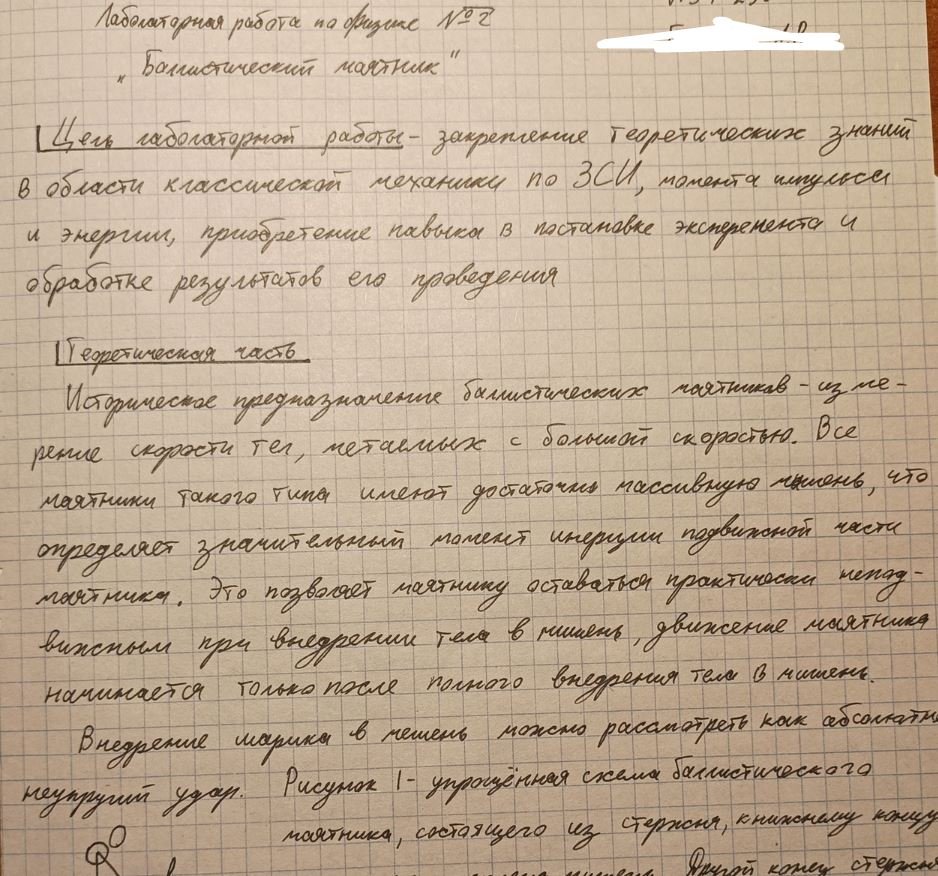 Лабораторная работа по физике №2
„Баллистический маятник"
Цель лабораторной работы - закрепление теоретических знаний
в области классической механики по ЗСИ, момента импульса
и энергии, приобретение навыка в постановке эксперемента и
обработке результатов его проведения
Теоретическая часть
Историческое предназначение баллистических маятников - изме-
рение скорости тел, метаемых с большой скоростью. Все
маятники такого типа имеют достаточно массивную мишень, что
определяет значительный момент инерции подвижной части
маятника. Это позволяет маятнику оставаться практически непод-
вижным при внедрении тела в мишень, движение маятника
начинается только после полного внедрения тела в мишень.
Внедрение шарика в мешень можно рассмотреть как абсолютно
неупругий удар. Рисунок 1 - упрощённая схема баллистического
маятника, состоящего из стержня, к нижнему концу
мишень. Другой конец стержня
O